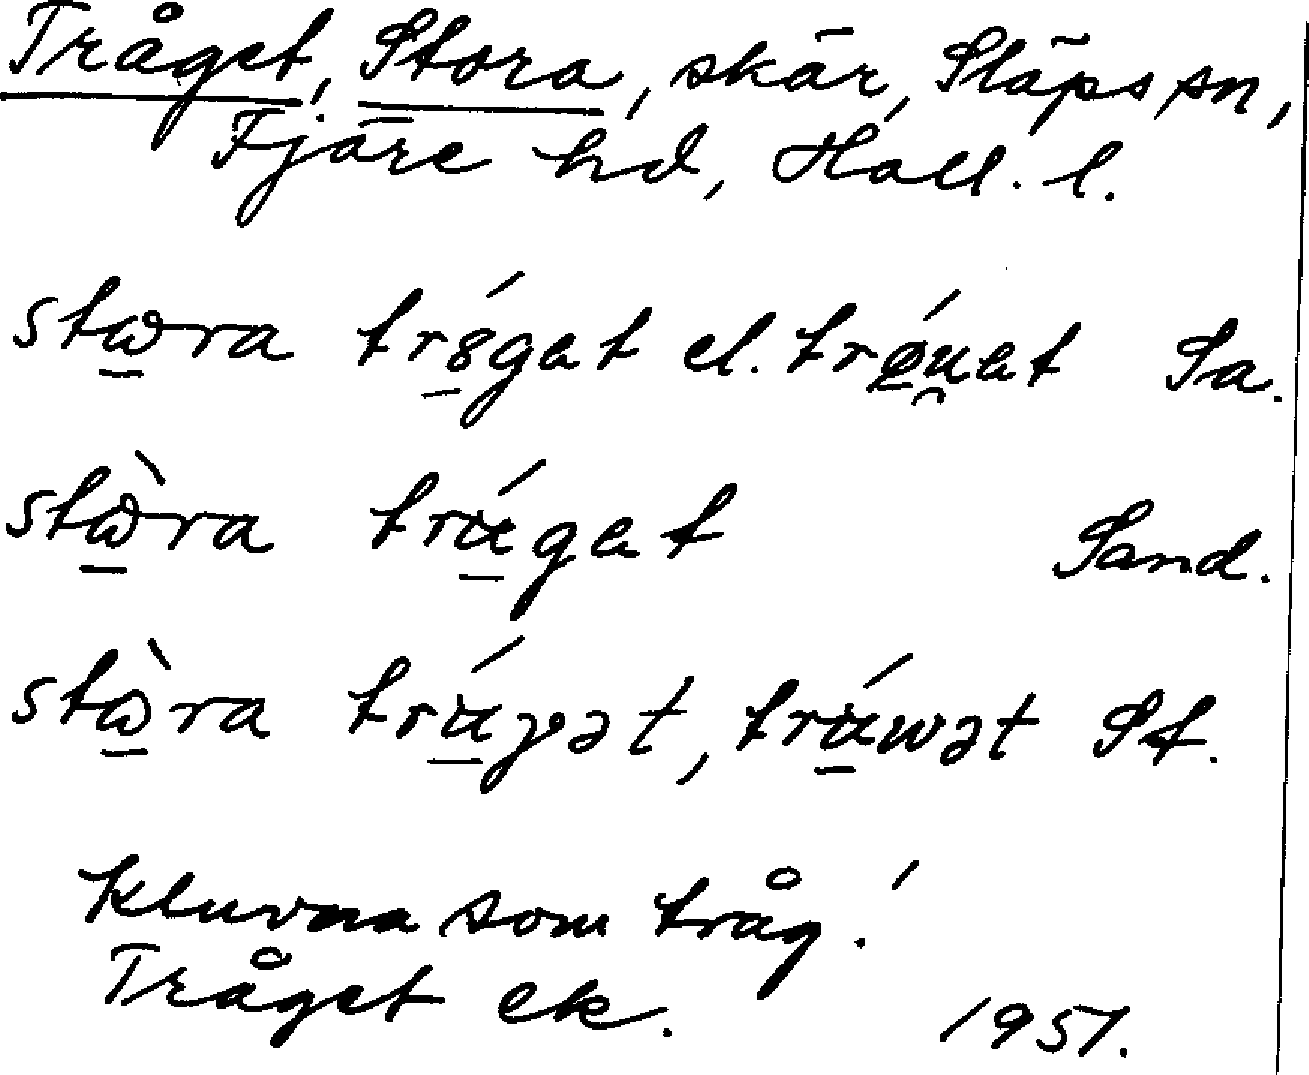 Tråget, Stora, skär, Släps sn,
Fjäre hd, Hall. l.
stω̱ra tr8̱́gat el. trǿ̱u̯at Sa.
stὼ̱ra trá̱gat Sand.
stὼ̱ra trá̱γət, trá̱wət Sf.
Kluvna som tråg.'
Tråget ek. 1951.